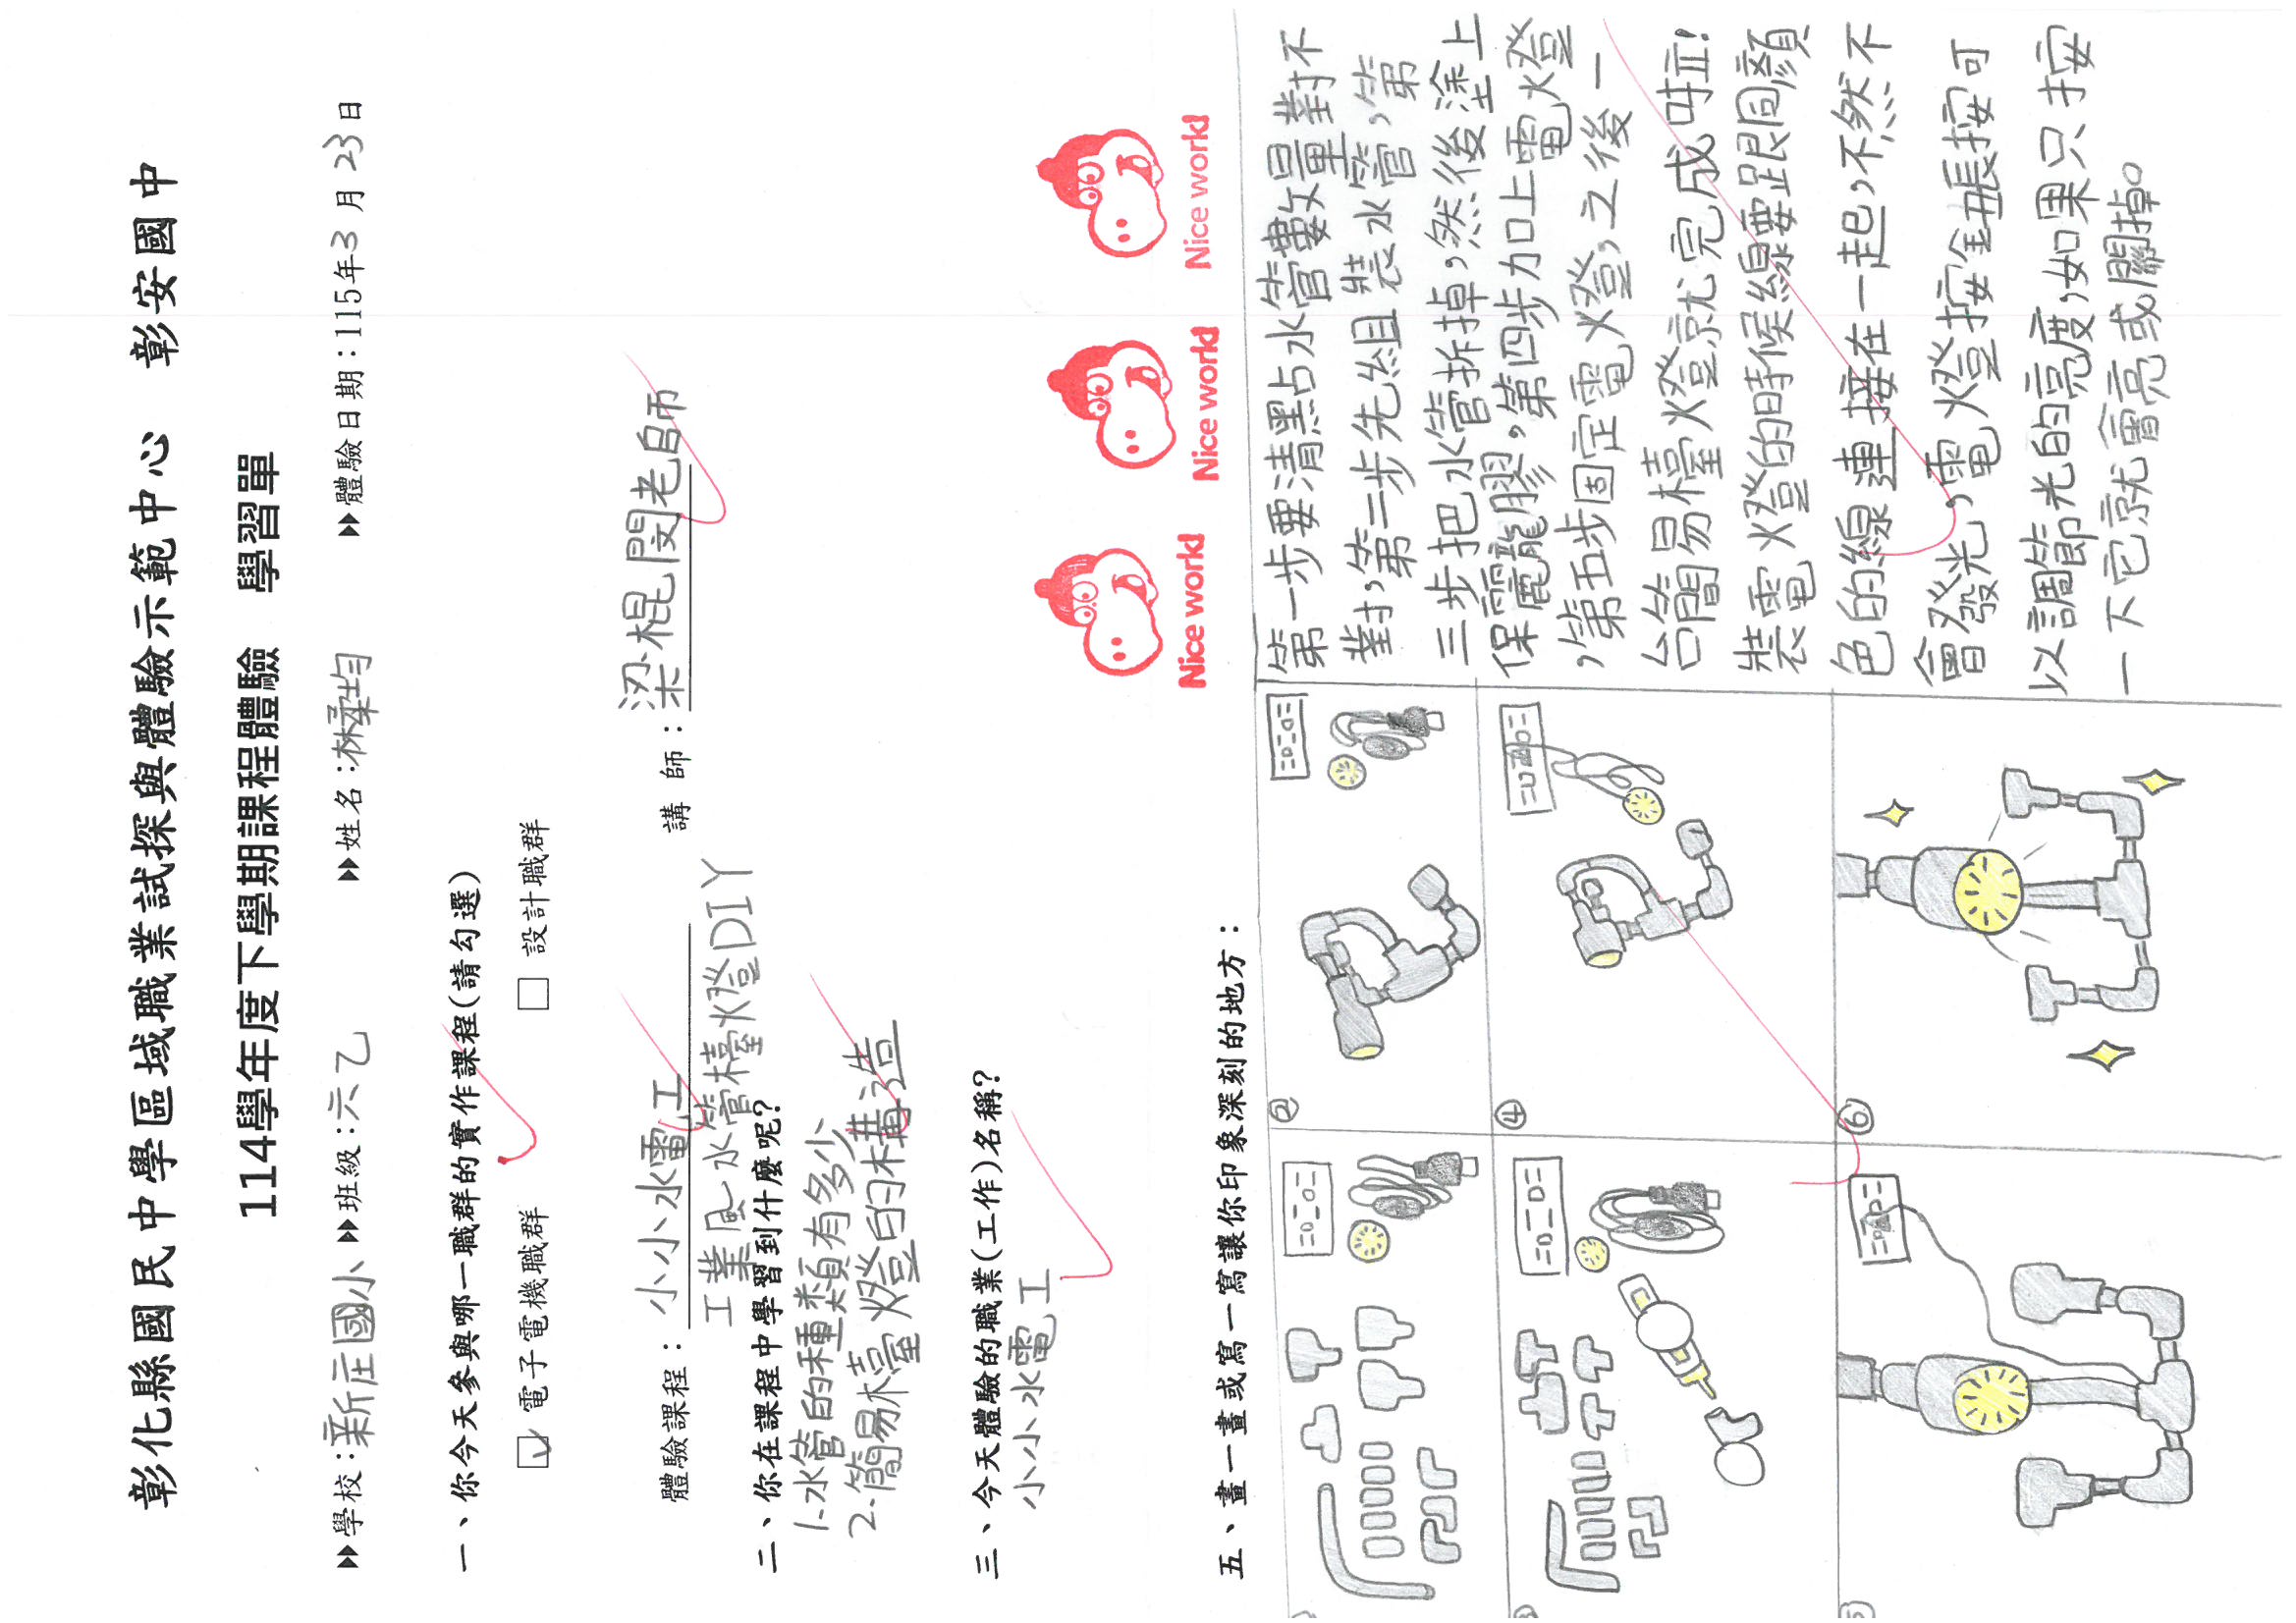 彰化縣國民中學區域職業試探與體驗示範中心 彰安國中
114學年度下學期課程體驗 學習單
▶▶學校:新庄國小 ▶▶班級:六乙 ▶▶姓名:林柔均 ▶▶體驗日期:115年3月23日
一、你今天參與哪一職群的實作課程(請勾選)
☑ 電子電機職群 □ 設計職群
體驗課程: 小小水電工 講 師: 梁棍閔老師
工業風水管檯燈DIY
二、你在課程中學習到什麼呢?
1.水管的種類有多少
2.簡易檯燈的構造
三、今天體驗的職業(工作)名稱?
小小水電工
Nice work!
Nice work!
Nice work!
五、畫一畫或寫一寫讓你印象深刻的地方:
②
④
⑤
⑥
第一步要清點水管數量對不
對,第二步先組裝水管,第
三步把水管拆掉,然後塗上
保麗龍膠,第四步加上電燈
,第五步固定電燈,之後一
台簡易檯燈就完成啦!
裝電燈的時候線要跟同顏
色的線連接在一起,不然不
會發光,電燈按鈕長按可
以調節光的亮度,如果只按
一下它就會亮或關掉。